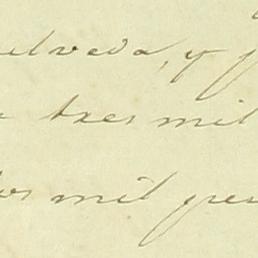 elveda, y p
tres mil
os mil pe